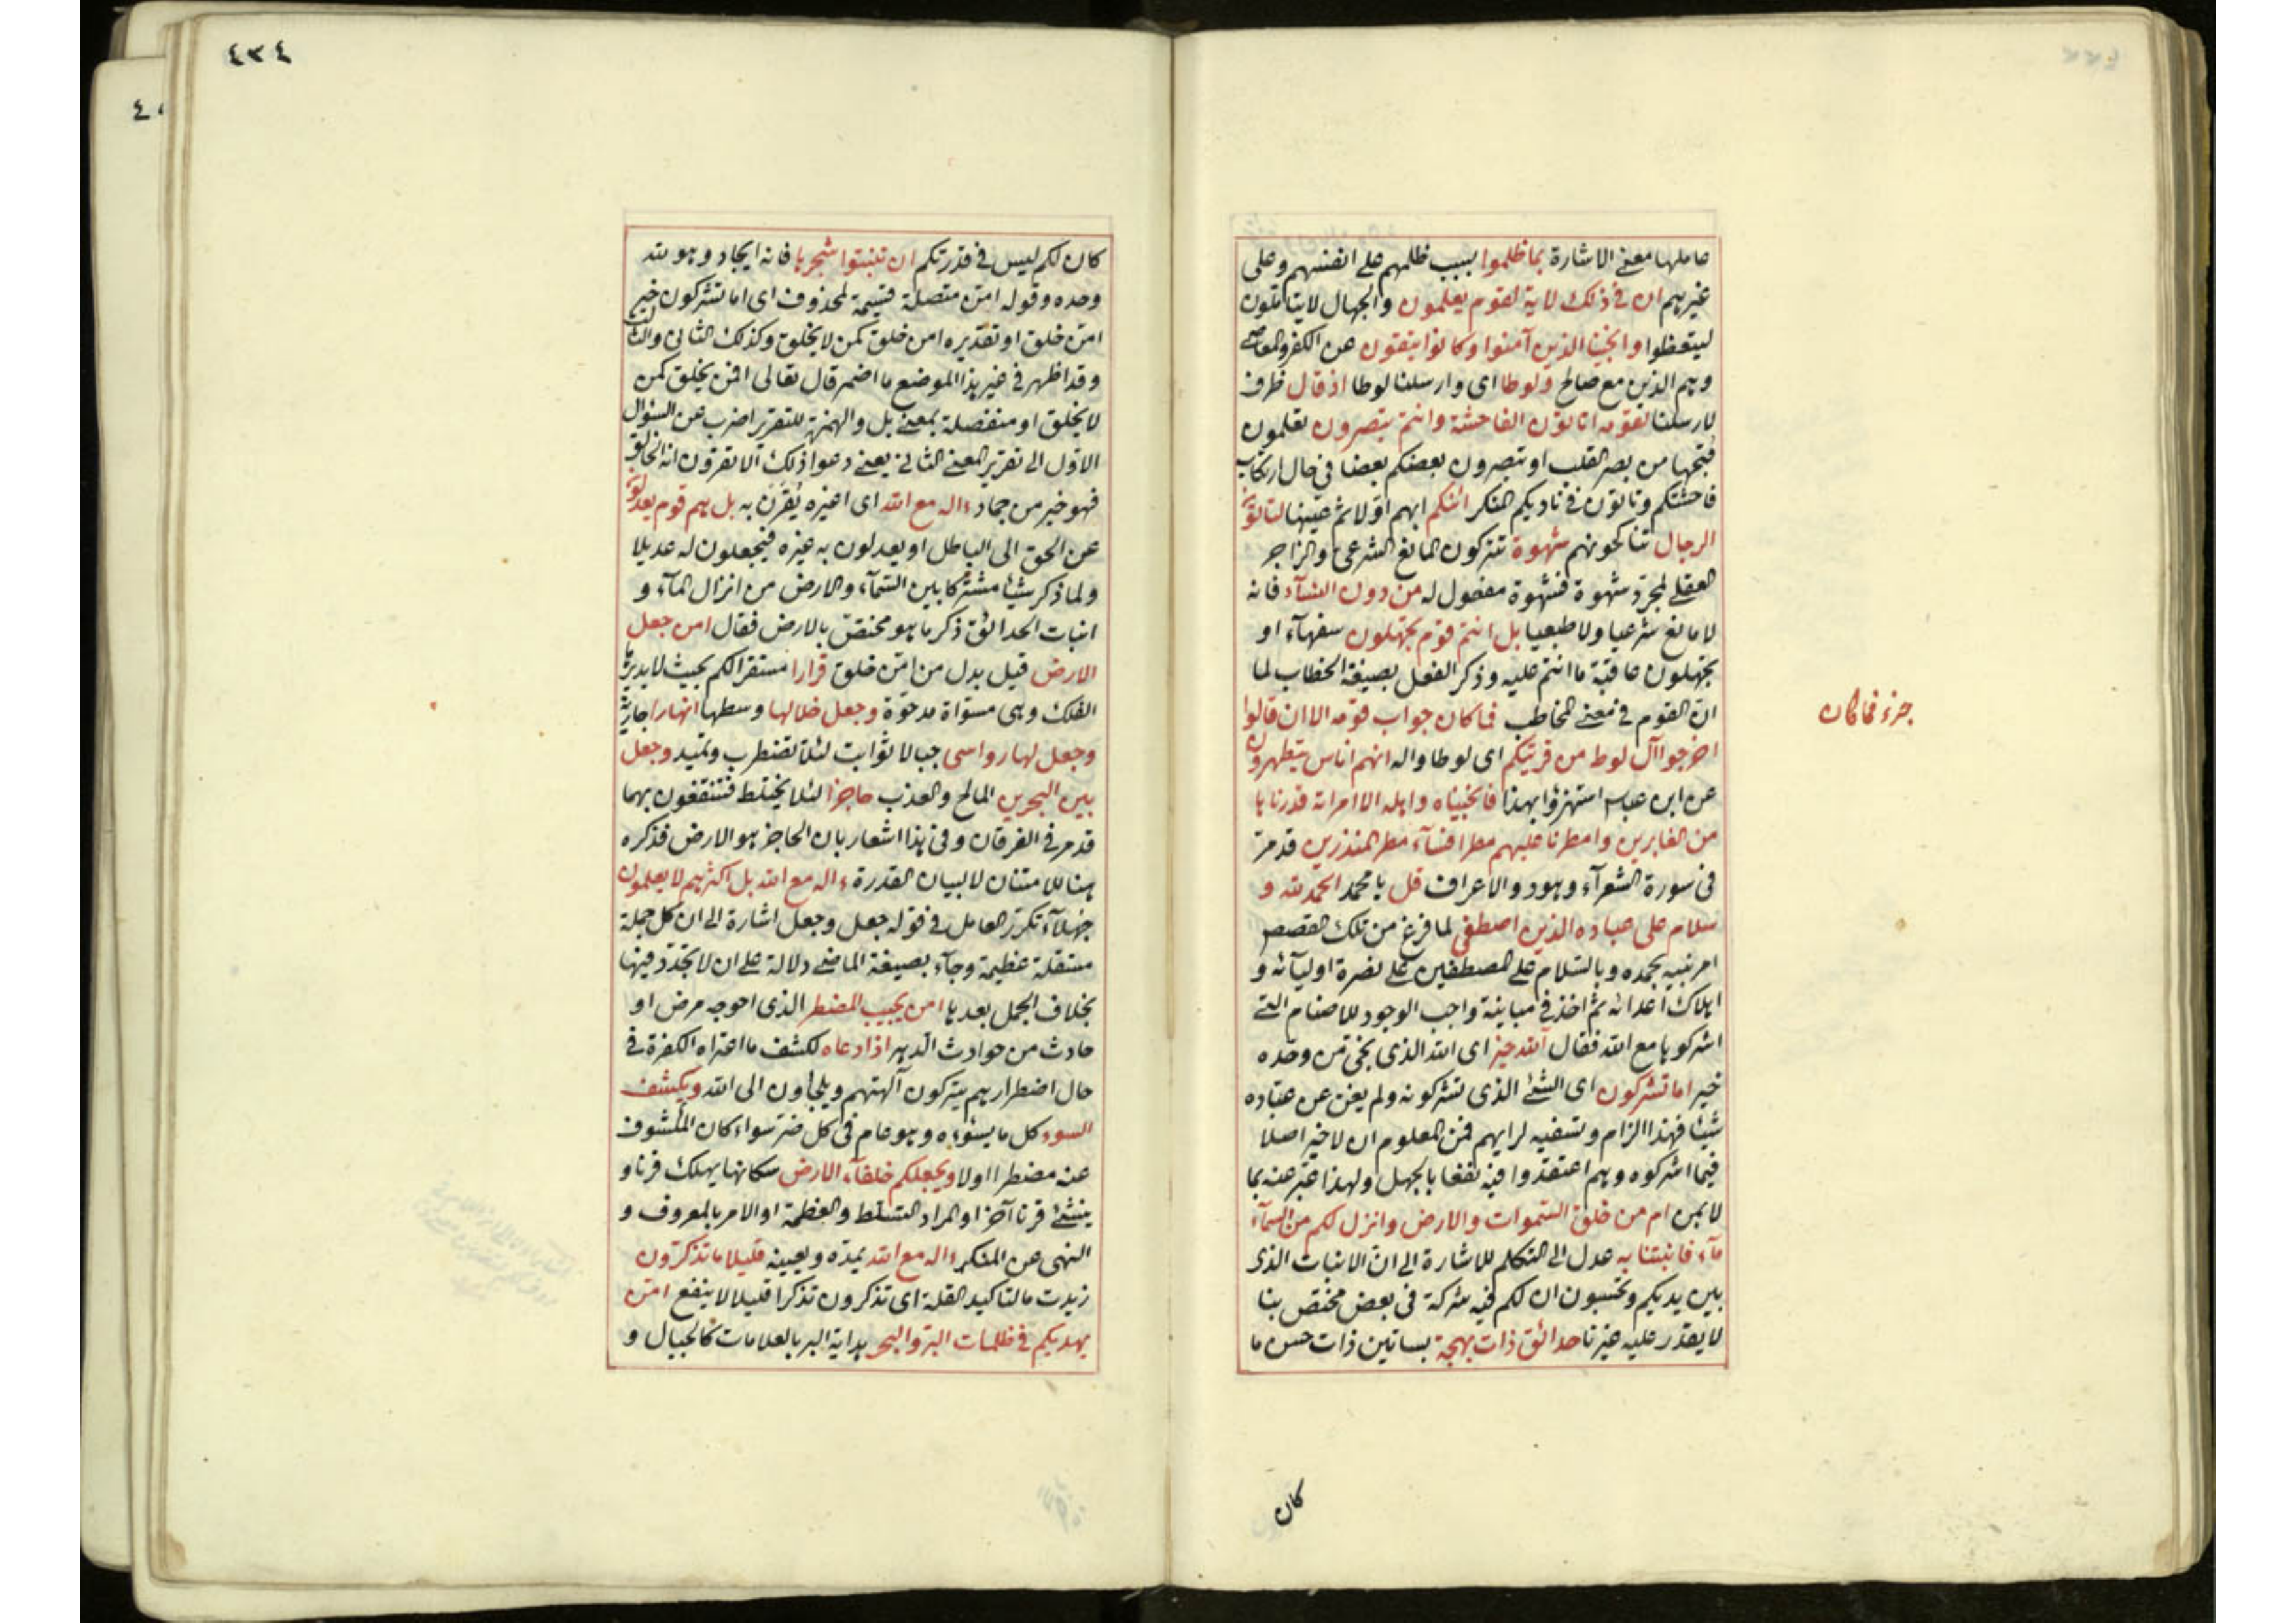 عاملها معنى الاشارة بما ظلموا بسبب ظلمهم على انفسهم وعلى
غيرهم ان في ذلك لاية لقوم يعلمون والجهال لا يتاملون
ليتعظوا وانجينا الذين آمنوا وكانوا يتقون عن الكفر والمعاصى
وهم الذين مع صالح ولوطا اى وارسلنا لوطا اذ قال ظرف
لارسلنا لقومه اتاتون الفاحشة وانتم تبصرون تعلمون
قبحها من بصر القلب او تبصرون بعضكم بعضا فى حال ارتكاب
فاحشتكم وتاتون فى ناديكم المنكر ائنكم ابهم اولا ثم عينها لتاتون
الرجال تناكحونهم شهوة تتركون المانع الشرعى والزاجر
العقلى لمجرد شهوة فشهوة مفعول له من دون النسآء فانه
لا مانع شرعيا ولا طبعيا بل انتم قوم تجهلون سفهآء او
تجهلون عاقبة ما انتم عليه وذكر الفعل بصيغة الخطاب لما
ان القوم فى معنى المخاطب فما كان جواب قومه الا ان قالوا
جزء فما كان
اخرجوا آل لوط من قريتكم اى لوطا واله انهم اناس يتطهرون
عن ابن عباس استهزؤا بهذا فانجيناه واهله الا امراته قدرناها
من الغابرين وامطرنا عليهم مطرا فسآء مطر المنذرين قد مر
فى سورة الشعرآء وهود والاعراف قل يا محمد الحمد لله و
سلام على عباده الذين اصطفى لما فرغ من تلك القصص
امر نبيه بحمده وبالسلام على المصطفين على نصرة اوليآئه و
اهلاك اعدائه ثم اخذ فى مباينة واجب الوجود للاصنام التى
اشركوها مع الله فقال آلله خير اى الله الذى نجى من وحده
خير اما تشركون اى الشئ الذى تشركونه ولم يغن عن عباده
شيئا فهذا الزام وتسفيه لرايهم فمن المعلوم ان لا خير اصلا
فيما اشركوه وهم اعتقدوا فيه نفعا بالجهل ولهذا عبر عنه بما
لا بمن ام من خلق السموات والارض وانزل لكم من السمآء
مآء فانبتنا به عدل الى التكلم للاشارة الى ان الانبات الذى
بين يديكم وتحسبون ان لكم فيه شركة فى بعض مختص بنا
لا يقدر عليه غيرنا حدائق ذات بهجة بساتين ذات حسن ما
كان
٤٣٤
كان لكم ليس فى قدرتكم ان تنبتوا شجرها فانه ايجاد وهو لله
وحده وقوله امن متصلة قسيمة لمحذوف اى اما تشركون خير
امن خلق او تقديره امن خلق كمن لا يخلق وكذلك الثانى والثالث
وقد اظهر فى غير هذا الموضع ما اضمر قال تعالى افمن يخلق كمن
لا يخلق او منفصلة بمعنى بل والهمزة للتقرير اضرب عن السؤال
الاول الى تقرير المعنى الثانى يعنى دعوا ذلك الا تقرون انه الخالق
فهو خير من جماد ءاله مع الله اى اغيره يقرن به بل هم قوم يعدلون
عن الحق الى الباطل او يعدلون به غيره فيجعلون له عديلا
ولما ذكر شيئا مشتركا بين السمآء والارض من انزال المآء و
انبات الحدائق ذكر ما هو مختص بالارض فقال امن جعل
الارض قيل بدل من امن خلق قرارا مستقرا لكم بحيث لا يديرها
الفلك وهى مستواة مدحوة وجعل خلالها وسطها انهارا جارية
وجعل لها رواسى جبالا ثوابت لئلا تضطرب وتميد وجعل
بين البحرين المالح والعذب حاجزا لئلا يختلط فتنتفعون بهما
قد مر فى الفرقان وفى هذا اشعار بان الحاجز هو الارض فذكره
هنا للامتنان لا لبيان القدرة ءاله مع الله بل اكثرهم لا يعلمون
جهلآء تكرر العامل فى قوله جعل وجعل اشارة الى ان كل جملة
مستقلة عظيمة وجآء بصيغة الماضى دلالة على ان لا تجدد فيها
بخلاف الجمل بعدها امن يجيب المضطر الذى احوجه مرض او
حادث من حوادث الدهر اذا دعاه لكشف ما اعتراه الكفرة فى
حال اضطرارهم يتركون آلهتهم ويلجاون الى الله ويكشف
السوء كل ما يسوءه وهو عام فى كل ضر سواء كان المكشوف
عنه مضطرا اولا ويجعلكم خلفآء الارض سكانها يهلك قرنا و
ينشئ قرنا آخر او المراد التسلط والعظمة او الامر بالمعروف و
النهى عن المنكر ءاله مع الله يمده ويعينه قليلا ما تذكرون
زيدت ما لتاكيد القلة اى تذكرون تذكرا قليلا لا ينفع امن
يهديكم فى ظلمات البر والبحر هداية البر بالعلامات كالجبال و